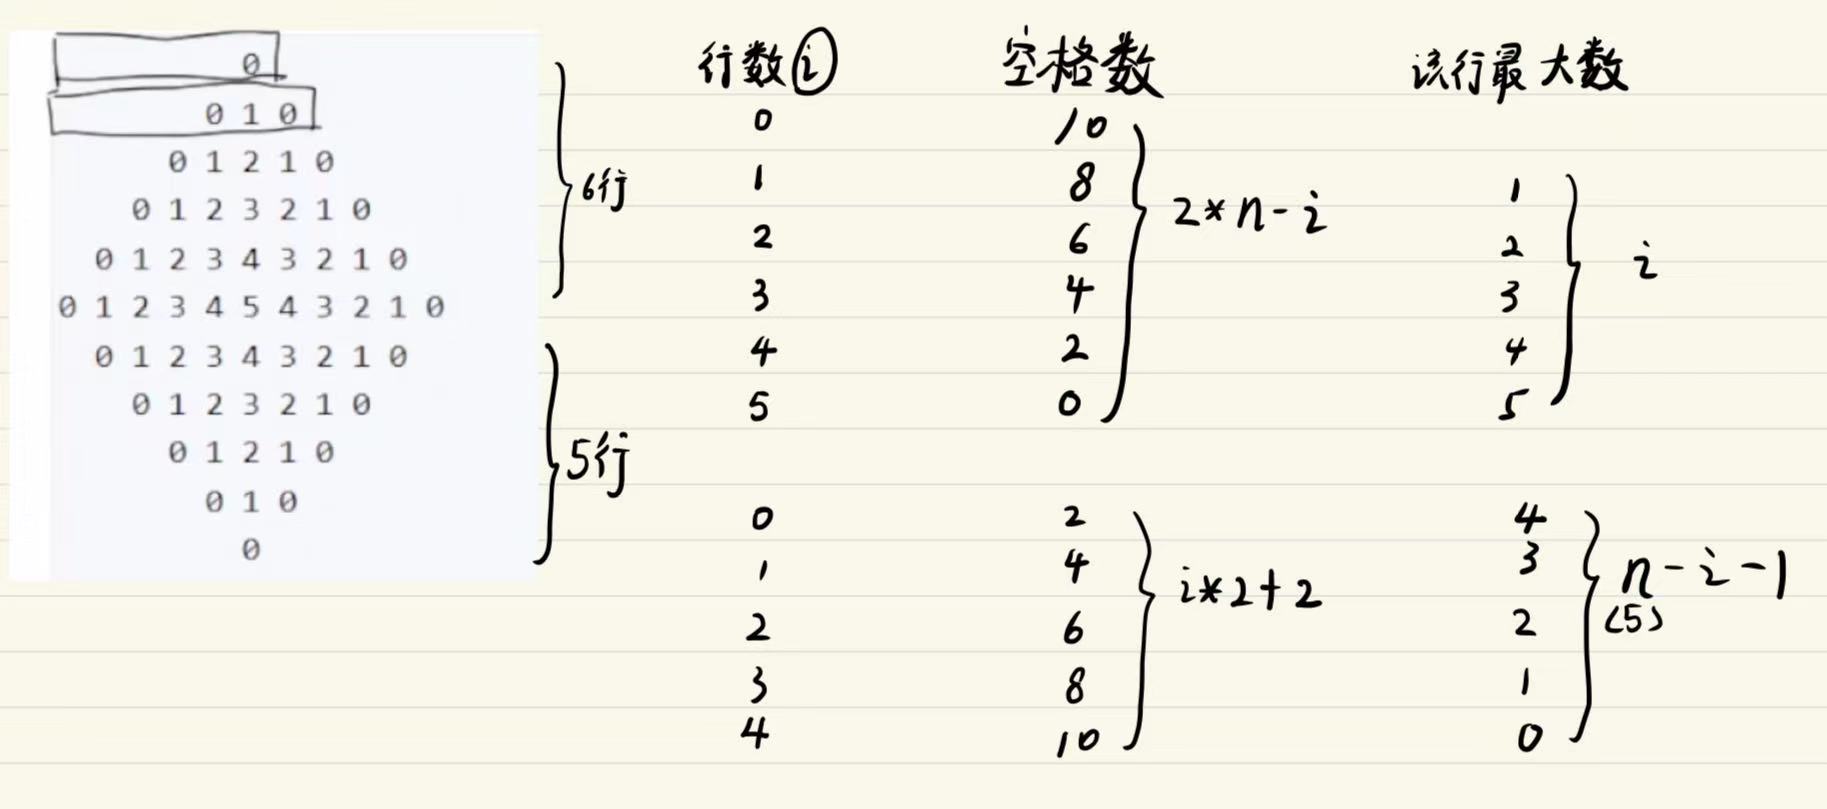 0
0 1 0
0 1 2 1 0
0 1 2 3 2 1 0
0 1 2 3 4 3 2 1 0
0 1 2 3 4 5 4 3 2 1 0
0 1 2 3 4 3 2 1 0
0 1 2 3 2 1 0
0 1 2 1 0
0 1 0
0
6行
5行
行数 i 空格数 该行最大数
0 10
1 8 1
2 6 2
3 4 3
4 2 4
5 0 5
2*n-i
i
0 2 4
1 4 3
2 6 2
3 8 1
4 10 0
i*2+2
n-i-1
(5)